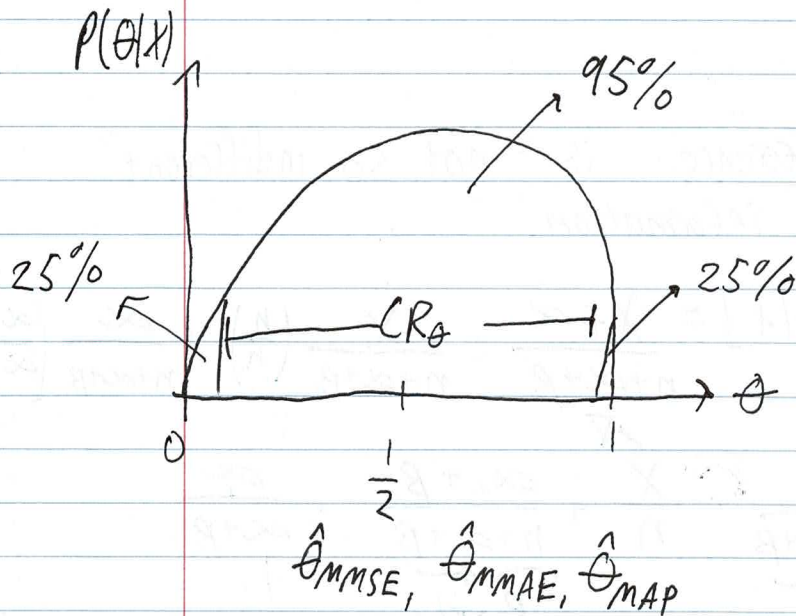 P(θ|X)
95%
25%
25%
CR_θ
θ
0
1/2
1
θ̂_MMSE, θ̂_MMAE, θ̂_MAP